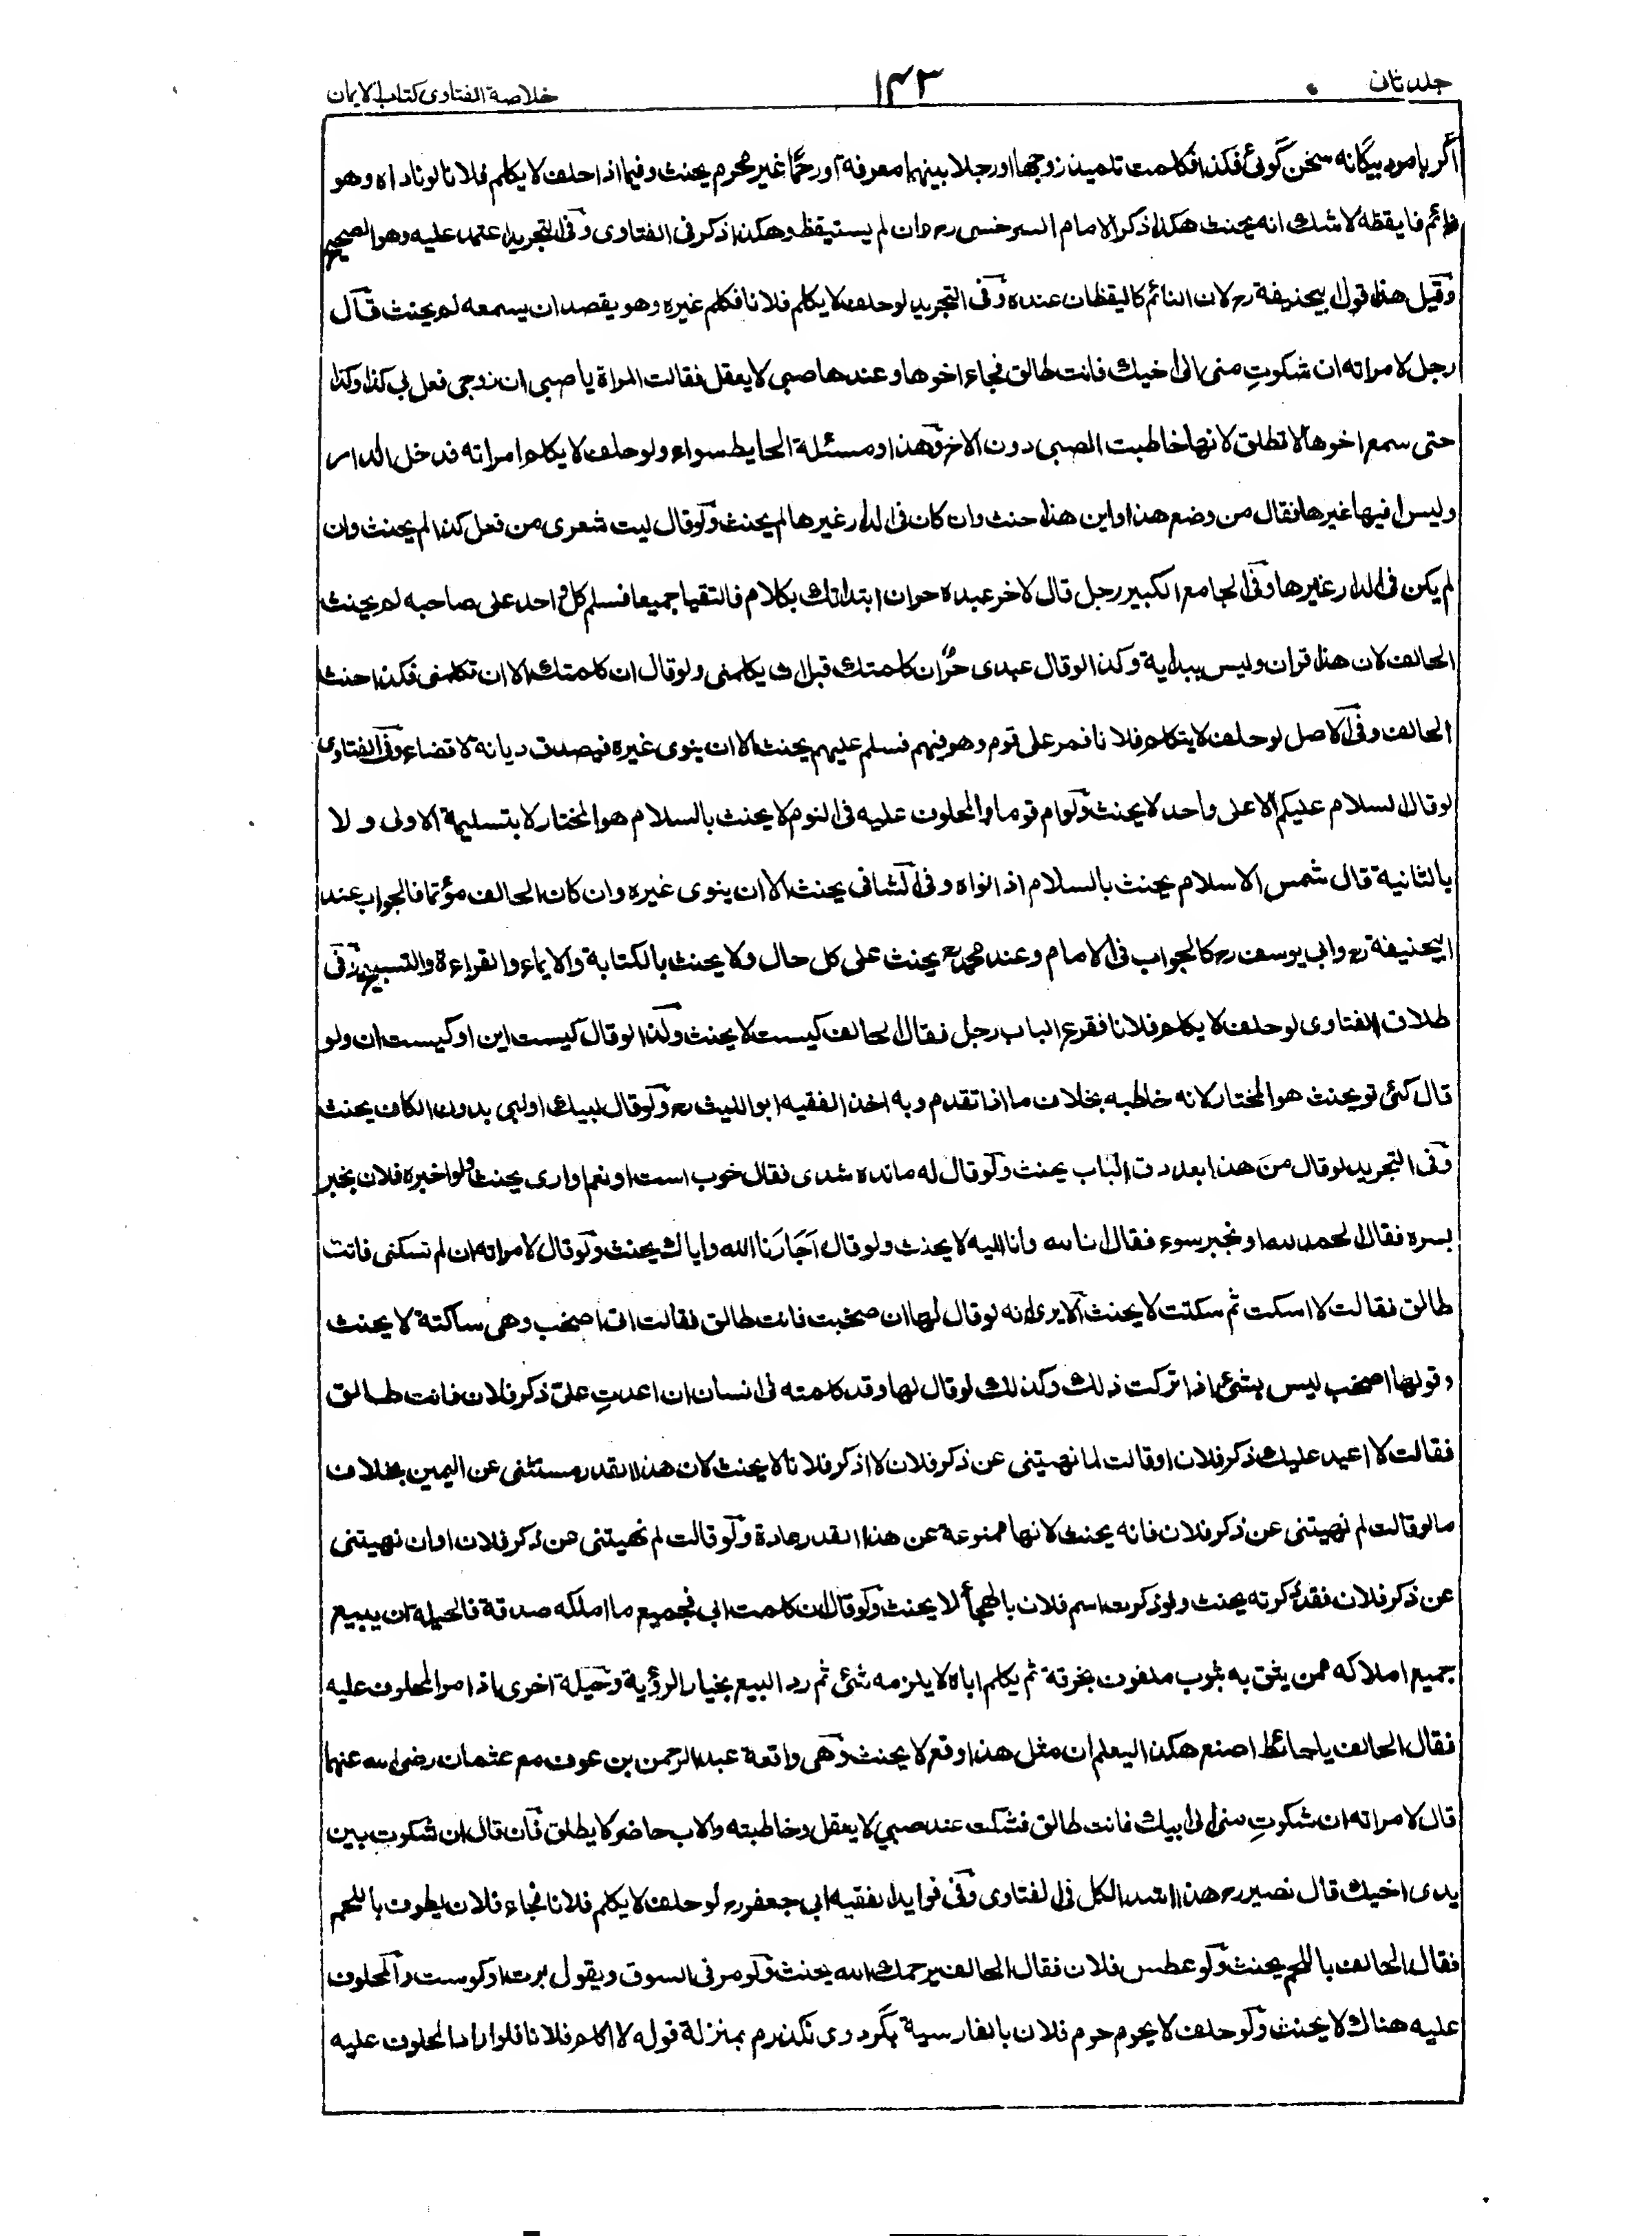 جلد ثان ۱۴۳ خلاصة الفتاوى كتاب الايمان
اگر بامرد بيگانه سخن گوئی فكذا فكلمت تلميذ زوجها او رجلا بينهما معرفة او رحما غير محرم يحنث وفيما اذا حلف لا يكلم فلانا لو ناداه وهو
نائم فايقظه لا شك انه يحنث هكذا ذكر الامام السرخسى رہ وان لم يستيقظ وهكذا ذكر فى الفتاوى وفى التجريد اعتمد عليه وهو الصحيح
وقيل هذا قول ابيحنيفة رہ لان النائم كاليقظان عنده وفى التجريد لو حلف لا يكلم فلانا فكلم غيره وهو يقصد ان يسمعه لم يحنث قال
رجل لامراته ان شكوتِ منى الى اخيك فانت طالق فجاء اخوها وعندها صبى لا يعقل فقالت المراة يا صبى ان زوجى فعل بى كذا وكذا
حتى سمع اخوها لا تطلق لانها خاطبت الصبى دون الاخ وهذا ومسئلة الحايط سواء ولو حلف لا يكلم امراته فدخل الدار
وليس فيها غيرها فقال من وضع هذا او اين هذا حنث وان كان فى الدار غيرها لم يحنث ولو قال ليت شعرى من فعل كذا لم يحنث وان
لم يكن فى الدار غيرها وفى الجامع الكبير رجل قال لاخر عبده حر ان ابتداتك بكلام فالتقيا جميعا فسلم كل واحد على صاحبه لم يحنث
الحالف لان هذا قران وليس ببداية وكذا لو قال عبدى حرٌّ ان كلمتك قبل ان يكلمنى ولو قال ان كلمتك الا ان تكلمنى فكذا حنث
الحالف وفى الاصل لو حلف لا يتكلم فلانا فمر على قوم وهو فيهم فسلم عليهم يحنث الا ان ينوى غيره فيصدق ديانة لا قضاء وفى الفتاوى
لو قال السلام عليكم الا على واحد لا يحنث ولو ام قوما والمحلوف عليه فى النوم لا يحنث بالسلام هو المختار لا بتسليمة الاولى ولا
بالثانية قال شمس الاسلام يحنث بالسلام اذا نواه وفى الشافى يحنث الا ان ينوى غيره وان كان الحالف مؤتما فالجواب عند
ابيحنيفة رہ وابى يوسف رہ كالجواب فى الامام وعند محمد رہ يحنث على كل حال ولا يحنث بالكتابة والايماء والقراءة والتسبيح وفى
طلاق الفتاوى لو حلف لا يكلم فلانا فقرع الباب رجل فقال الحالف كيست لا يحنث وكذا لو قال كيست اين او كيست ان ولو
قال كئى تو يحنث هو المختار لانه خاطبه بخلاف ما اذا تقدم وبه اخذ الفقيه ابو الليث رہ ولو قال لبيك او لبى بدون الكاف يحنث
وفى التجريد لو قال مَن هذا بعد دق الباب يحنث ولو قال له مانده شدى فقال خوب است او نعم او ارى يحنث ولو اخبره فلان بخبر
يسره فقال الحمد لله او بخبر سوء فقال انا لله وانا اليه لا يحنث ولو قال اَجَارَنا الله واياك يحنث ولو قال لامراته ان لم تسكتى فانت
طالق فقالت لا اسكت ثم سكتت لا يحنث الا يرى انه لو قال لها ان صخبت فانت طالق فقالت انى اصخب وهى ساكتة لا يحنث
وقولها اصخب ليس بشئ اذا تركت ذلك وكذلك لو قال لها وقد كلمته فى انسان ان اعدتِ علىّ ذكر فلان فانت طالق
فقالت لا اعيد عليك ذكر فلان او قالت لما نهيتنى عن ذكر فلان لا اذكر فلانا لا يحنث لان هذا القدر مستثنى عن اليمين بخلاف
ما لو قالت لم نهيتنى عن ذكر فلان فانه يحنث لانها ممنوعة عن هذا القدر عادة ولو قالت لم نهيتنى عن ذكر فلان او ان نهيتنى
عن ذكر فلان فقد ذكرته يحنث ولو ذكرت اسم فلان بالهجأ لا يحنث ولو قال ان كلمت ابى فجميع ما املكه صدقة فالحيلة ان يبيع
جميع املاكه ممن يثق به بثوب ملفوف بخرقة ثم يكلم اباه لا يلزمه شئ ثم رد البيع بخيار الرؤية وحيلة اخرى اذا مر المحلوف عليه
فقال الحالف يا حائط اصنع هكذا ليعلم ان مثل هذا وقع لا يحنث وهى واقعة عبد الرحمن بن عوف مع عثمان رضى الله عنهما
قال لامراته ان شكوتِ منى الى ابيك فانت طالق فشكت عند صبي لا يعقل وخاطبته والاب حاضر لا يطلق فان قال ان شكوت بين
يدى اخيك قال نصير رہ هذا اشد الكل فى الفتاوى وفى فوايد الفقيه ابى جعفر رہ لو حلف لا يكلم فلانا فجاء فلان يطوف باللحم
فقال الحالف يا لحم يحنث ولو عطس فلان فقال الحالف يرحمك الله يحنث ولو مر فى السوق ويقول والمحلوف
عليه هناك لا يحنث ولو حلف لا يحوم حوم فلان بالفارسية بگرد وى نگذرم بمنزلة قوله لا اكلم فلانا فلو اراد المحلوف عليه